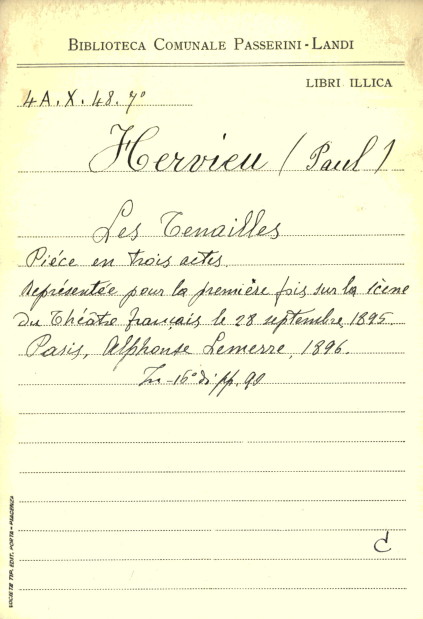 BIBLIOTECA COMUNALE PASSERINI-LANDI
LIBRI ILLICA
4A.X.48.7º
Hervieu (Paul)
Les Tenailles
Piéce en trois actes
Représentée pour la première fois sur la scène
du Théâtre français le 28 septembre 1895
Paris, Alphonse Lemerre, 1896.
In-16º di pp. 90
C
SOCIETÀ TIP. EDIT. PORTA - PIACENZA